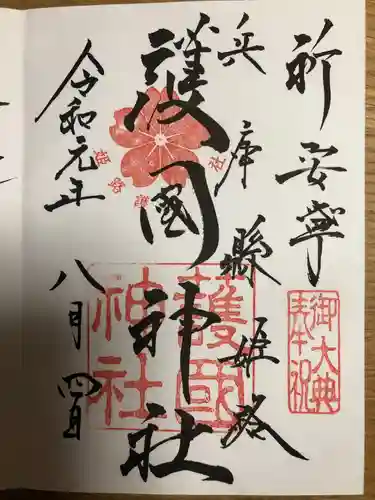 祈安寧
兵庫縣姫路
護國神社
令和元年
八月四日
護國
神社
御大典
奉祝